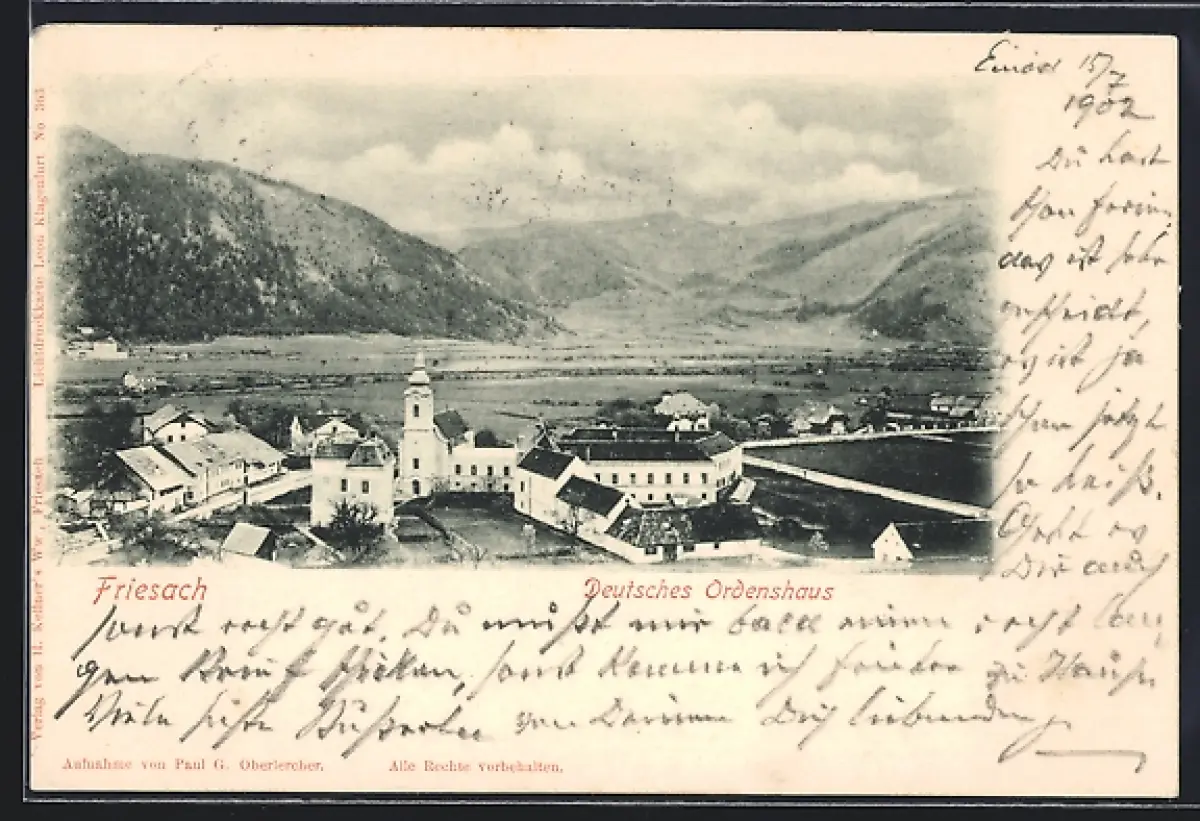 Einöd 15/7
1902
Du hast
schon Ferien,
das ist sehr
gescheidt,
es ist ja
schon jetzt
so heiß.
Geht es
Dir auch
Friesach
Deutsches Ordenshaus
sonst recht gut. Du mußt mir bald einen recht lan
gen Brief schicken, sonst komme ich früher zu Hause
Viele süße Busserln von Deinem Dich liebenden
Aufnahme von Paul G. Oberlercher.
Alle Rechte vorbehalten.
Verlag von H. Kellner's Ww., Friesach
Lichtdruckkarte Leon Klagenfurt No 363